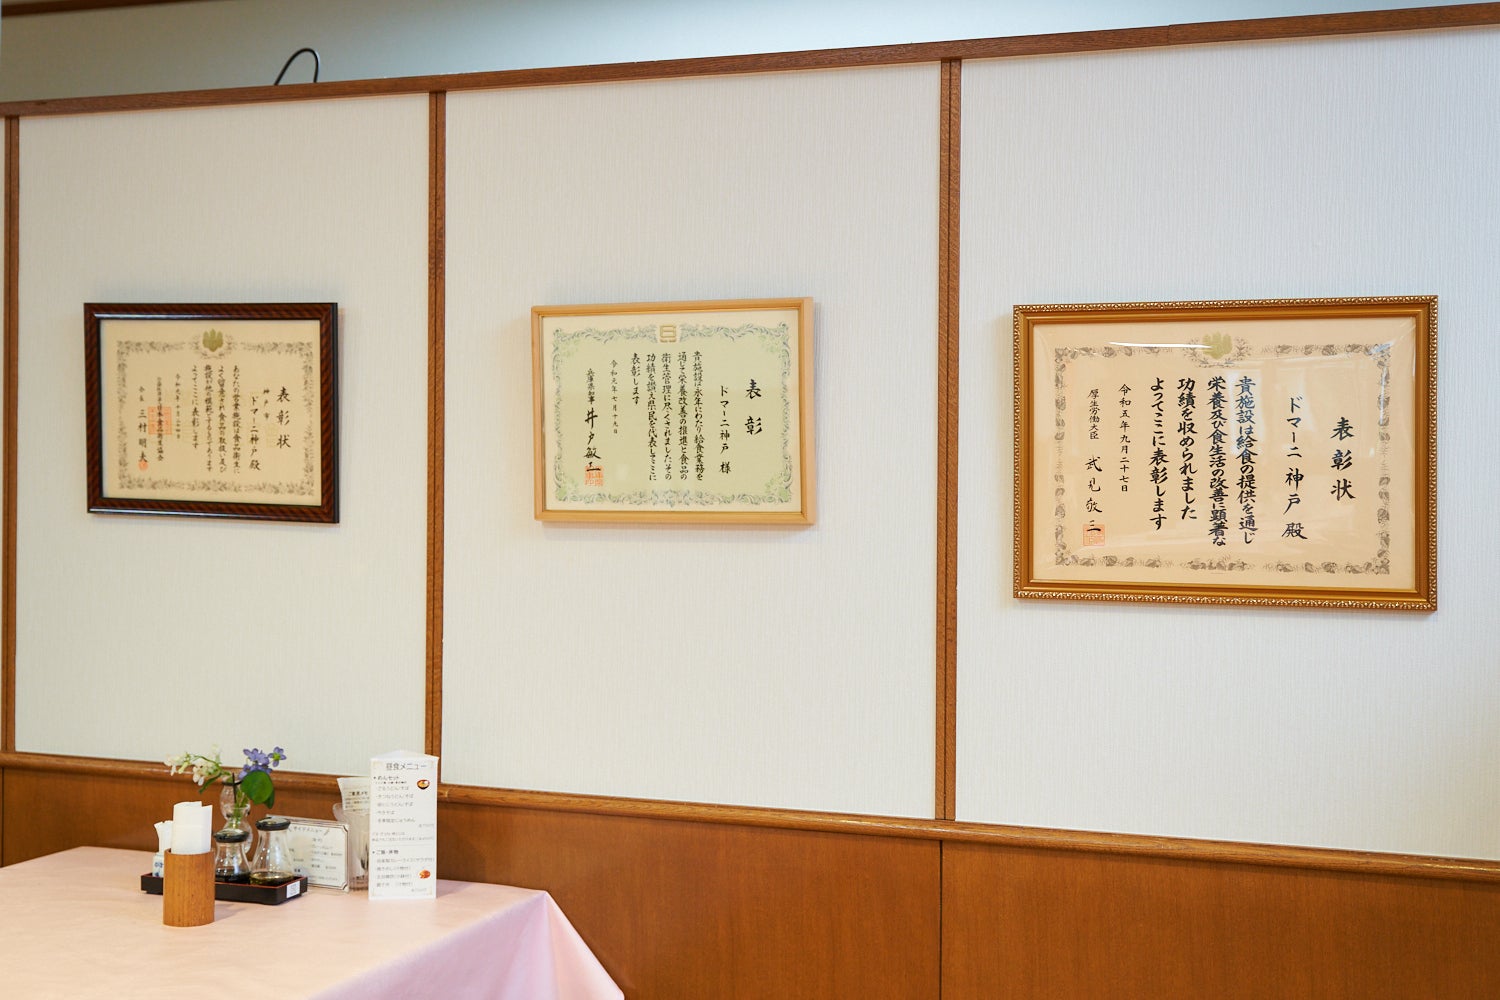 表彰状
神戸市
ドマーニ神戸 殿
あなたの営業施設は食品衛生に
よく留意され食品の取扱い及び
施設が他の模範とするものであります
よってここに表彰します
令和元年十月二十四日
公益社団法人日本食品衛生協会
会長 三村明夫
表彰
ドマーニ神戸 様
貴施設は永年にわたり給食業務を
通じて栄養改善の推進と食品の
衛生管理に尽くされましたその
功績を讃え県民を代表してここに
表彰します
令和元年七月十九日
兵庫県知事 井戸敏三
表彰状
ドマーニ神戸 殿
貴施設は給食の提供を通じ
栄養及び食生活の改善に顕著な
功績を収められました
よってここに表彰します
令和五年九月二十七日
厚生労働大臣 武見敬三
昼食メニュー
めんセット
ご飯・丼物
ご意見メモ